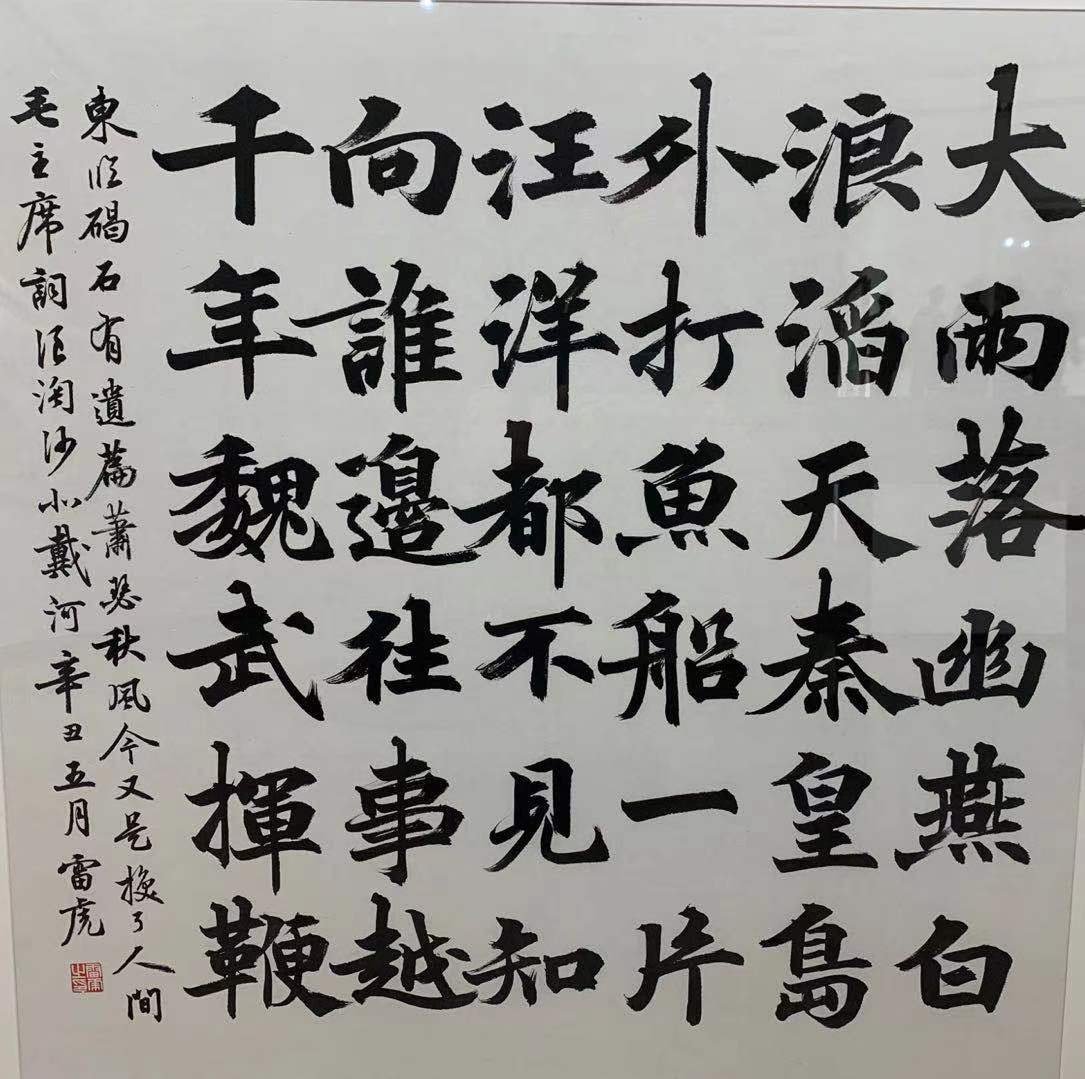 大雨落幽燕白
浪滔天秦皇島
外打魚船一片
汪洋都不見知
向誰邊往事越
千年魏武揮鞭
東临碣石有遺篇蕭瑟秋風今又是換了人間
毛主席詞浪淘沙北戴河辛丑五月雷虎
雷虎之印